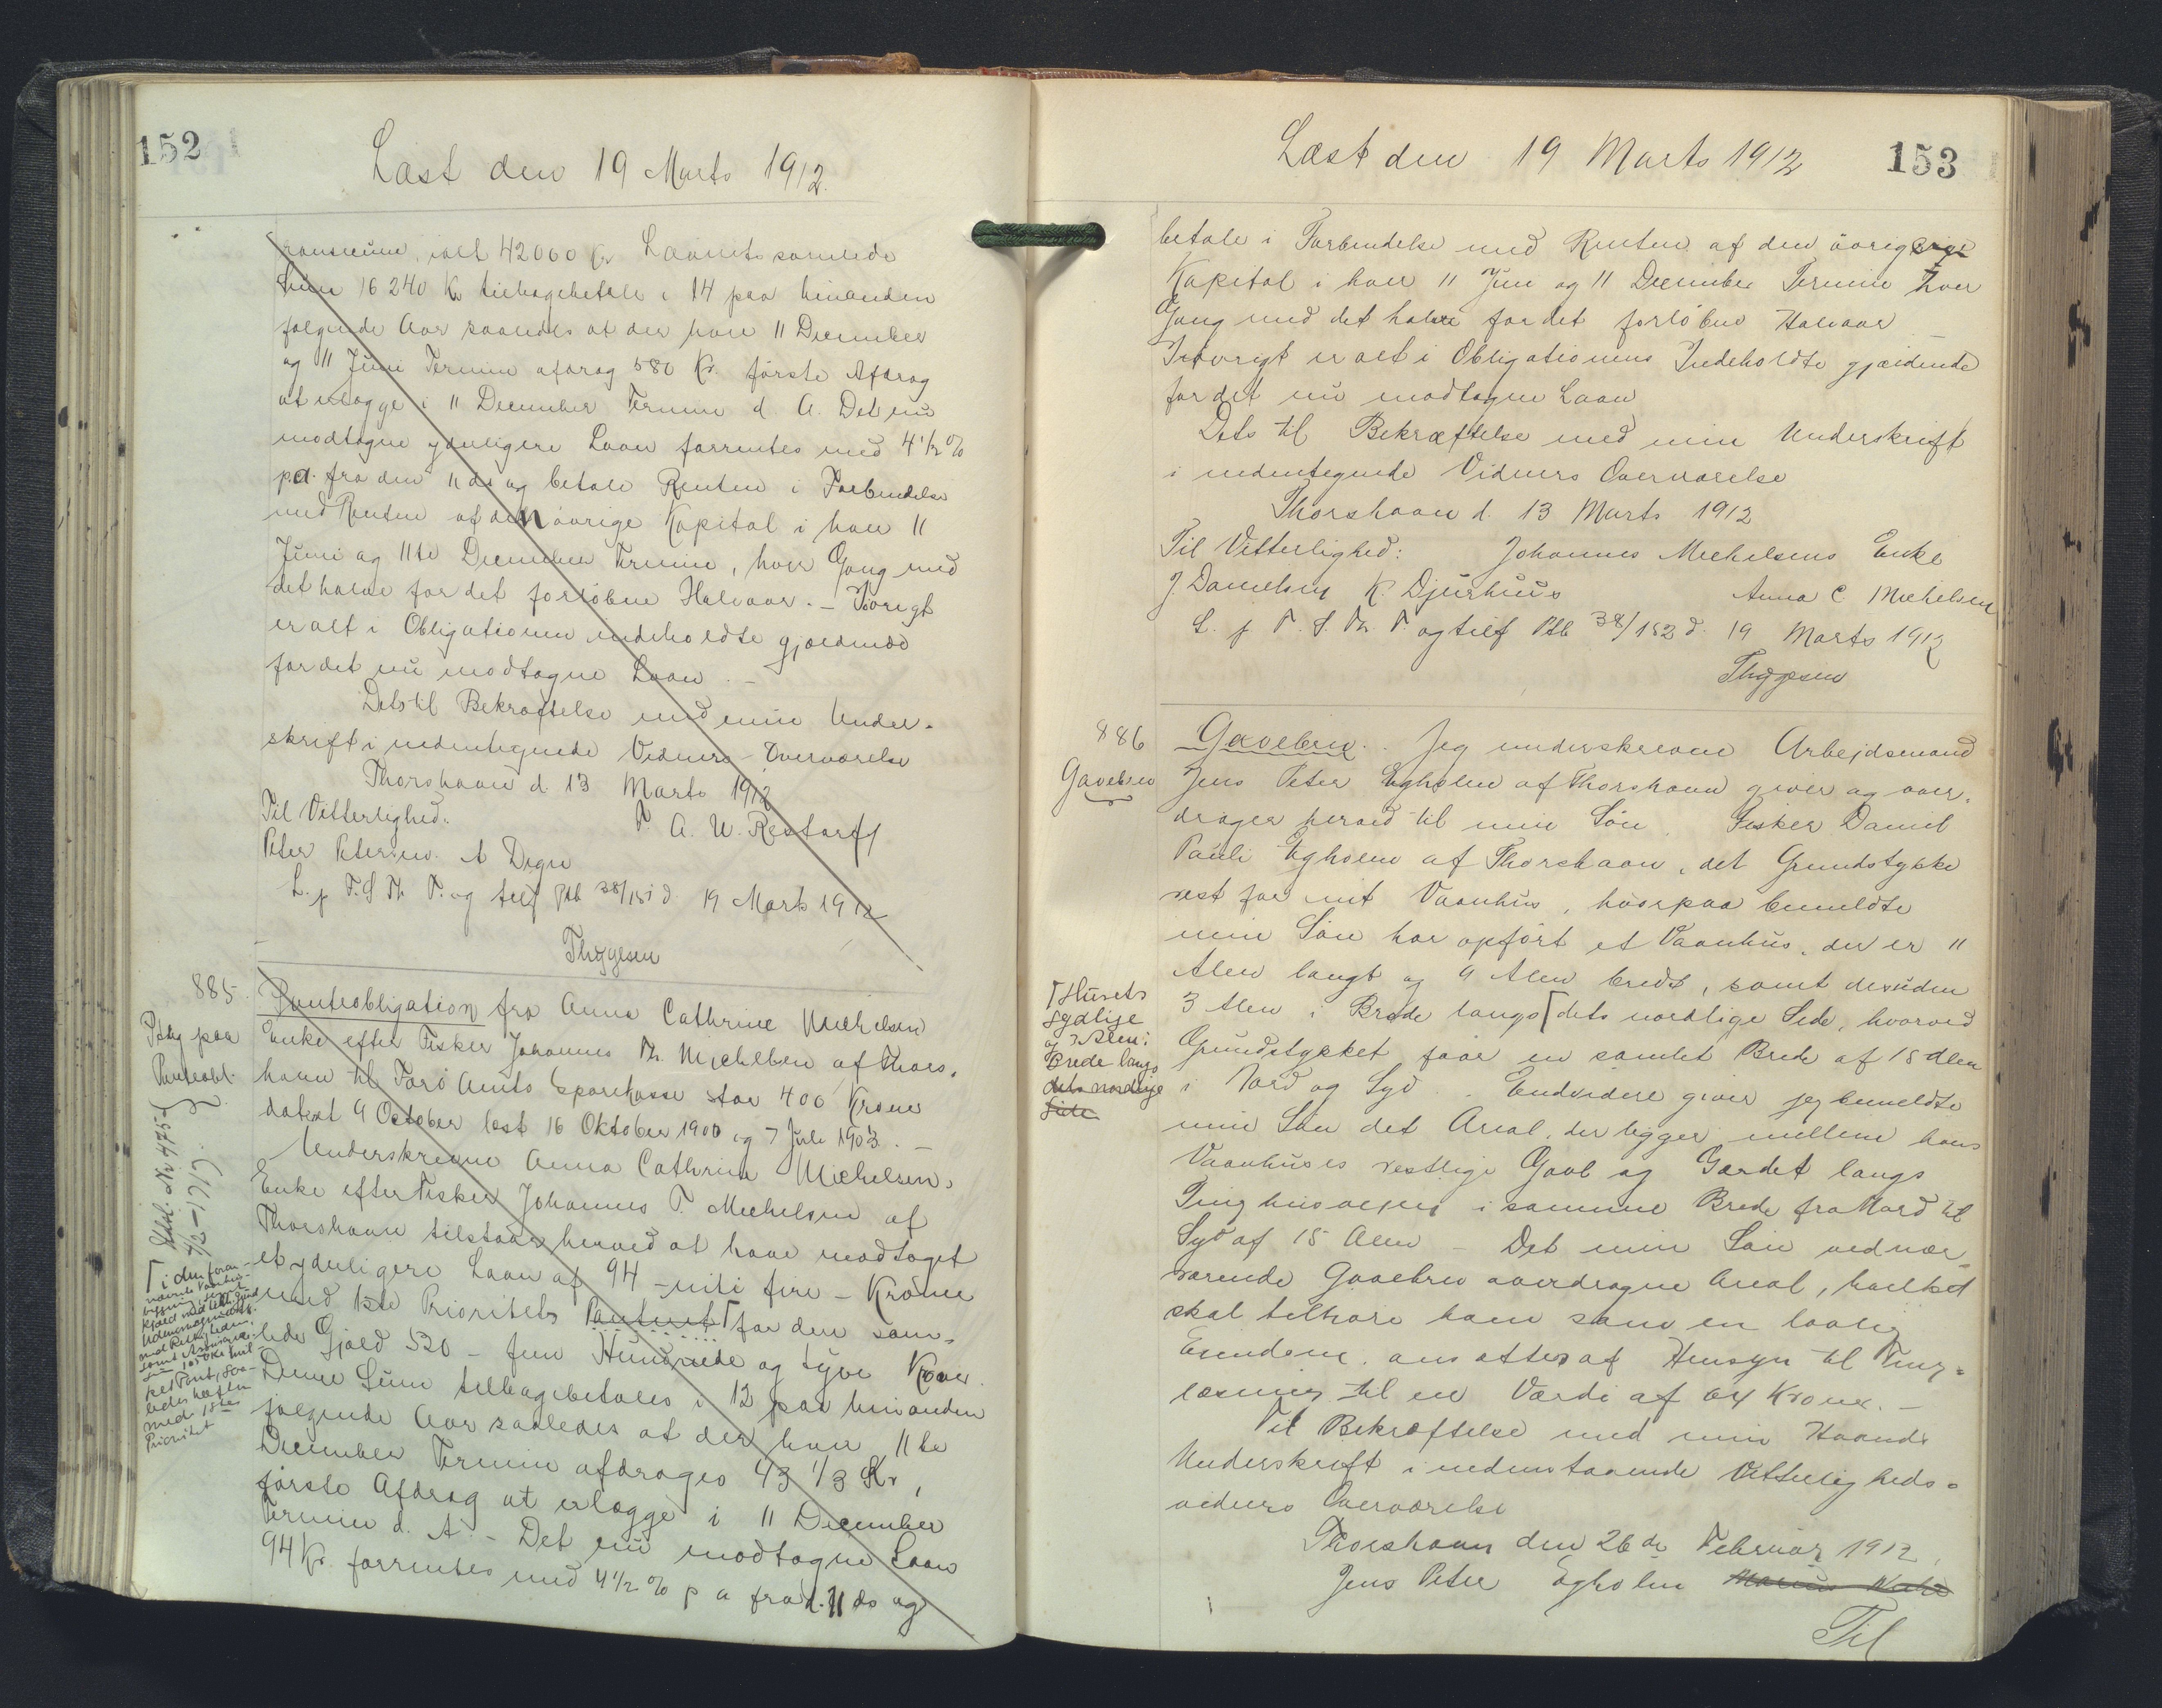 152
Læst den 19 Marts 1912.
ranseeum, ialt 42060 Kr Laanets samlede
Sum 16240 Kr tilbagebetale i 14 paa hinanden
følgende Aar saaledes at der hver 11 December
og 11 Juni Termin afdrag 580 Kr. første Afdrag
at erlægge i 11 December Termin d. A. Det nu
modtagne yderligere Laan forrentes med 4 1/2 %
p.a. fra den 11 ds og betale Renten i Forbindelse
med Renten af den øvrige Kapital i hver 11
Juni og 11te December Termin, hver Gang med
det halve for det forløbne Halvaar. – Iøvrigt
er alt i Obligationen indeholdte gjældende
for det nu modtagne Laan. –
Dets til Bekræftelse med min Under-
skrift i undertegnede Vidners Overværelse
Thorshavn d 13 Marts 1912
Til Vitterlighed. F. A. W. Restorff
Peter Petersen. A Degn
L. p. F. S. Th. P. og tilf Ptb 38/151 d. 19 Marts 1912
Thygesen
885.
Pategn paa
Panteobl.
Udsl. Nr 475
4/2-1919.
Panteobligation fra Anna Cathrine Michelsen
Enke efter Fisker Johannes Th. Michelsen af Thors-
havn til Færø Amts Sparekasse stor 400 Kroner
dateret 9 October læst 16 Oktober 1900 og 7 Juli 1903. –
Underskrevne Anna Cathrine Michelsen,
Enke efter Fisker Johannes T. Michelsen af
Thorshavn tilstaar herved at have modtaget
et yderligere Laan af 94 – niti fire – Kroner
med 1ste Prioritets Panteret ⌈ for den sam-
lede Gjæld 520 – fem Hundrede og tyve Kroner.
Denne Sum tilbagebetales i 12 paa hinanden
følgende Aar saaledes at der hver 11te
December Termin afdrages 43 1/3 Kr,
første Afdrag at erlægge i 11 December
Termin d. A. – Det nu modtagne Laan
94 Kr. forrentes med 4 1/2 % p a fra d. 11 ds og
⌈ i den foran-
nævnte Vaanhus-
bygning, samt
med Rettigheder,
samt Assurance-
sum
ket Pant, saa-
ledes hæfter
med 1ste
Prioritet
153
Læst den 19 Marts 1912
betale i Forbindelse med Renten af den øvrige
Kapital i hver 11 Juni og 11 December Termin hver
Gang med det halve for det forløbne Halvaar –
Iøvrigt er alt i Obligationens Indeholdte gjældende
for det nu modtagne Laan
Dets til Bekræftelse med min Underskrift
i undertegnede Vidners Overværelse
Thorshavn d. 13 Marts 1912
Til Vitterlighed: Johannes Michelsens Enke
J Danielsen K. Djurhuus Anna C Michelsen
L. p. F. S. Th. P. og tilf Ptb 38/152 d. 19 Marts 1912
Thygesen
886
Gavebrev
Gavebrev. Jeg underskrevne Arbejdsmand
Jens Peter Egholm af Thorshavn giver og over-
drager herved til min Søn. Fisker Daniel
Pauli Egholm af Thorshavn, det Grundstykke
vest for mit Vaanhus, hvorpaa bemeldte
min Søn har opført et Vaanhus, der er 11
Alen langt og 9 Alen bredt, samt desuden
3 Alen i Brede langs ⌈ dets nordlige Side, hvorved
Grundstykket faar en samlet Brede af 15 Alen
i Nord og Syd. Endvidere giver jeg bemeldte
min Søn det Areal, der ligger mellem hans
Vaanhuses vestlige Gavl og Gærdet langs
Tinghusvejen i samme Brede fra Nord til
Syd af 15 Alen – Det min Søn ved nær-
værende Gavebrev overdragne Areal, hvilket
skal tilhøre ham som en lovlig
Ejendom, ansættes af Hensyn til Ting-
læsning til en Værdi af 64 Kroner. –
Til Bekræftelse med min Haands
Underskrift i nedenstaaende Vitterligheds-
vidners Overværelse
Thorshavn den 26de Februar 1912,
Jens Peter Egholm
Til
⌈ Husets
sydlige
og 3 Alen i
Brede langs
dets nordlige
Side